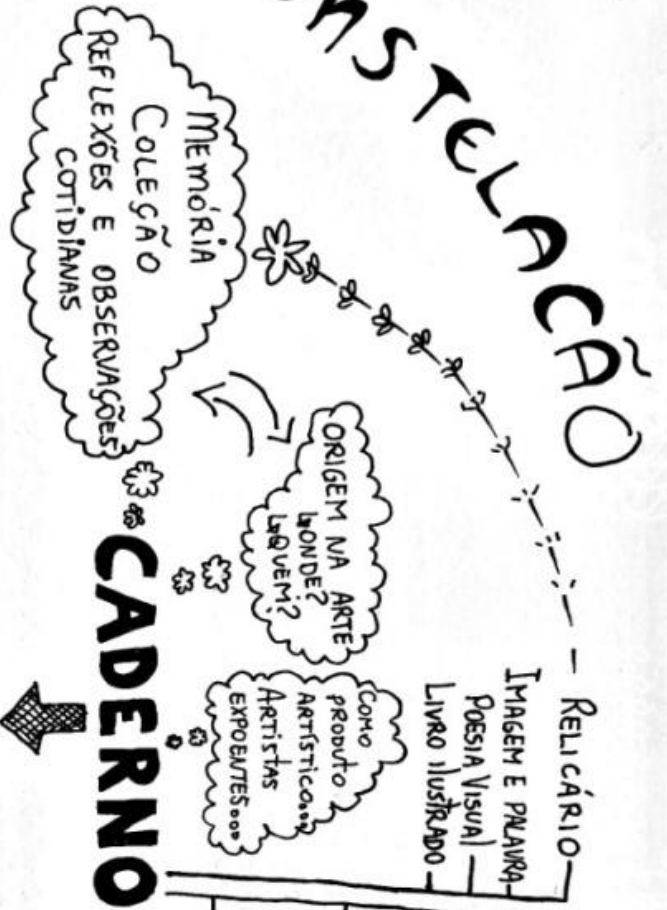 NSTELACÃO
MEMÓRIA
COLEÇÃO
REFLEXÕES E OBSERVAÇÕES
COTIDIANAS
ORIGEM NA ARTE
↳ONDE?
↳QUEM?
COMO
PRODUTO
ARTÍSTICO...
ARTISTAS
EXPOENTES...
RELICÁRIO
IMAGEM E PALAVRA
POESIA VISUAL
LIVRO ILUSTRADO
CADERNO